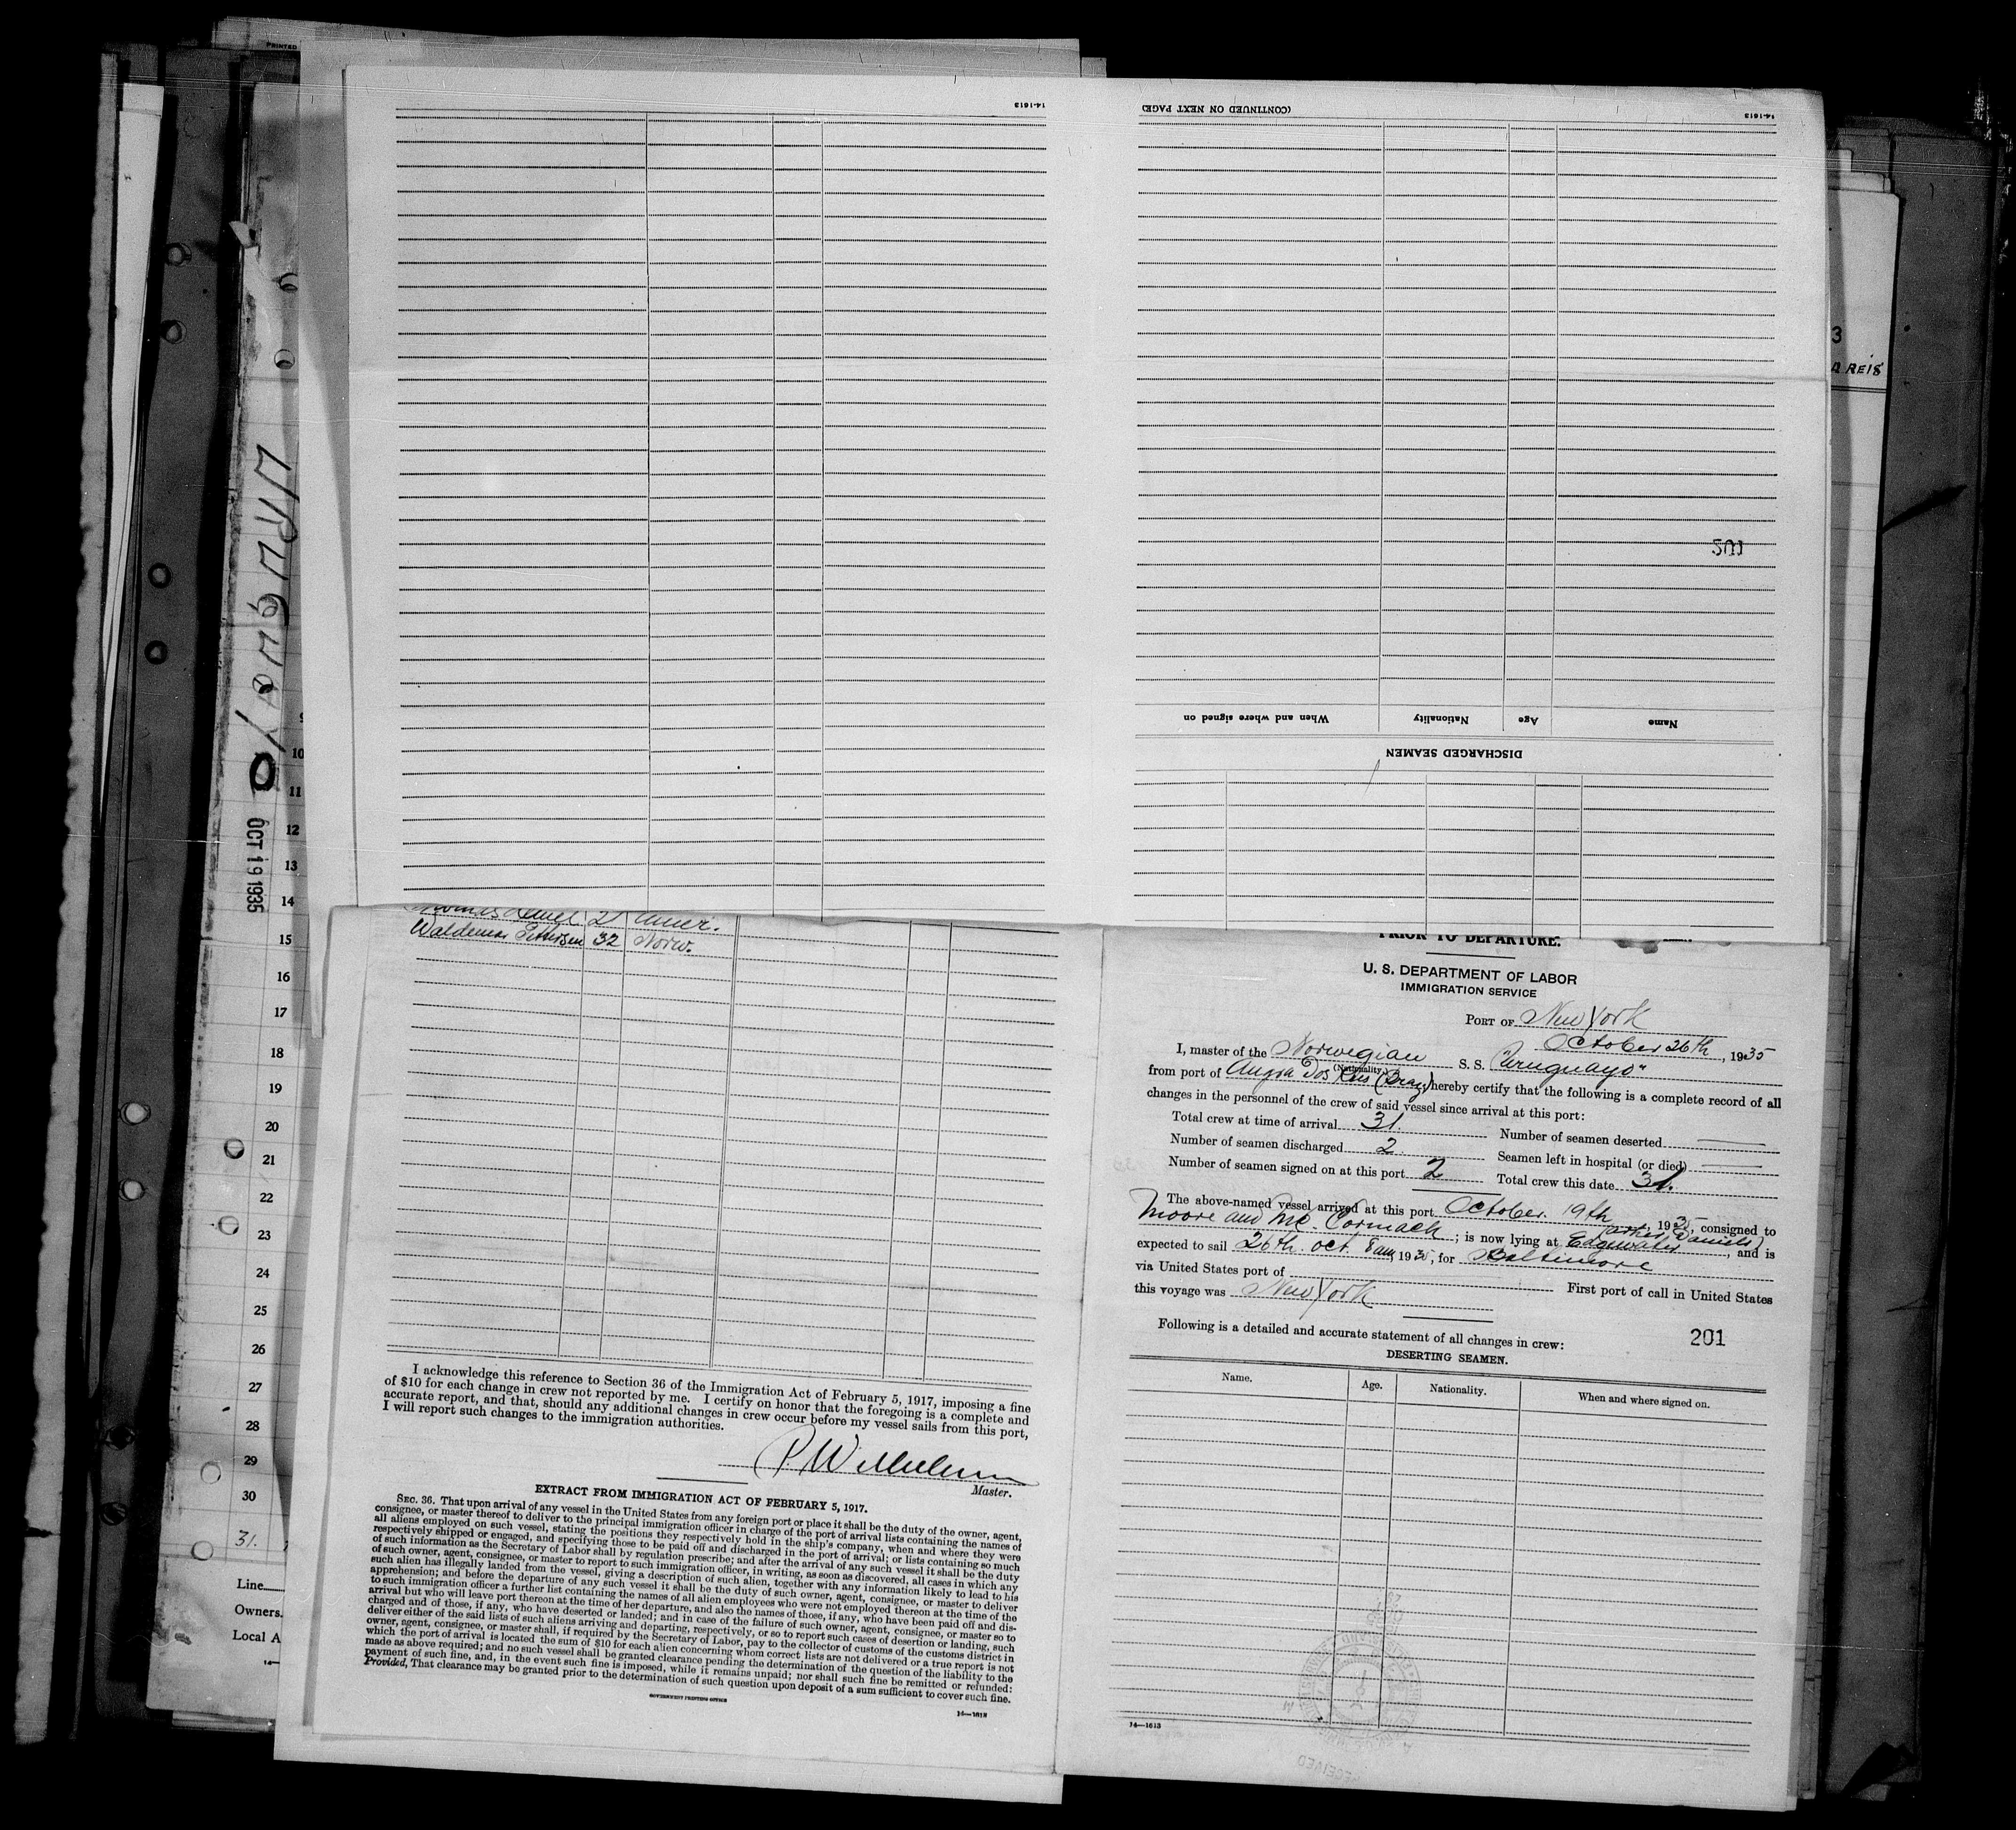 PRINTED
14-1613
(CONTINUED ON NEXT PAGE)
14-1613
201
When and where signed on
Nationality
Age
Name
DISCHARGED SEAMEN
3
A REIS
OCT 19 1935
9
10
11
12
13
14
15
16
17
18
19
20
21
22
23
24
25
26
27
28
29
30
31.
Line
Owners
Local A
21 Amer.
Waldemar Pettersen 32 Norw.
I acknowledge this reference to Section 36 of the Immigration Act of February 5, 1917, imposing a fine
of $10 for each change in crew not reported by me. I certify on honor that the foregoing is a complete and
accurate report, and that, should any additional changes in crew occur before my vessel sails from this port,
I will report such changes to the immigration authorities.
Master.
EXTRACT FROM IMMIGRATION ACT OF FEBRUARY 5, 1917.
SEC. 36. That upon arrival of any vessel in the United States from any foreign port or place it shall be the duty of the owner, agent,
consignee, or master thereof to deliver to the principal immigration officer in charge of the port of arrival lists containing the names of
all aliens employed on such vessel, stating the positions they respectively hold in the ship's company, when and where they were
respectively shipped or engaged, and specifying those to be paid off and discharged in the port of arrival; or lists containing so much
of such information as the Secretary of Labor shall by regulation prescribe; and after the arrival of any such vessel it shall be the duty
of such owner, agent, consignee, or master to report to such immigration officer, in writing, as soon as discovered, all cases in which any
such alien has illegally landed from the vessel, giving a description of such alien, together with any information likely to lead to his
apprehension; and before the departure of any such vessel it shall be the duty of such owner, agent, consignee, or master to deliver
to such immigration officer a further list containing the names of all alien employees who were not employed thereon at the time of the
arrival but who will leave port thereon at the time of her departure, and also the names of those, if any, who have been paid off and dis-
charged and of those, if any, who have deserted or landed; and in case of the failure of such owner, agent, consignee, or master so to
deliver either of the said lists of such aliens arriving and departing, respectively, or so to report such cases of desertion or landing, such
owner, agent, consignee, or master shall, if required by the Secretary of Labor, pay to the collector of customs of the customs district in
which the port of arrival is located the sum of $10 for each alien concerning whom correct lists are not delivered or a true report is not
made as above required; and no such vessel shall be granted clearance pending the determination of the question of the liability to the
payment of such fine, and, in the event such fine is imposed, while it remains unpaid; nor shall such fine be remitted or refunded:
Provided, That clearance may be granted prior to the determination of such question upon deposit of a sum sufficient to cover such fine.
GOVERNMENT PRINTING OFFICE
14—1613
PRIOR TO DEPARTURE.
U. S. DEPARTMENT OF LABOR
IMMIGRATION SERVICE
PORT OF New York
October 26th, 1935
I, master of the Norwegian S. S. "Uruguayo"
(Nationality)
from port of Angra Dos Reis (Braz) hereby certify that the following is a complete record of all
changes in the personnel of the crew of said vessel since arrival at this port:
Total crew at time of arrival 31. Number of seamen deserted
Number of seamen discharged 2. Seamen left in hospital (or died)
Number of seamen signed on at this port 2 Total crew this date 31.
The above-named vessel arrived at this port October 19th, 1935, consigned to
Moore and Mc. Cormack; is now lying at Edgewater, and is
expected to sail 26th. oct. 8 am, 1935, for Baltimore
via United States port of First port of call in United States
this voyage was New York
Following is a detailed and accurate statement of all changes in crew:
201
DESERTING SEAMEN.
Name. Age. Nationality. When and where signed on.
14—1613
RECEIVED